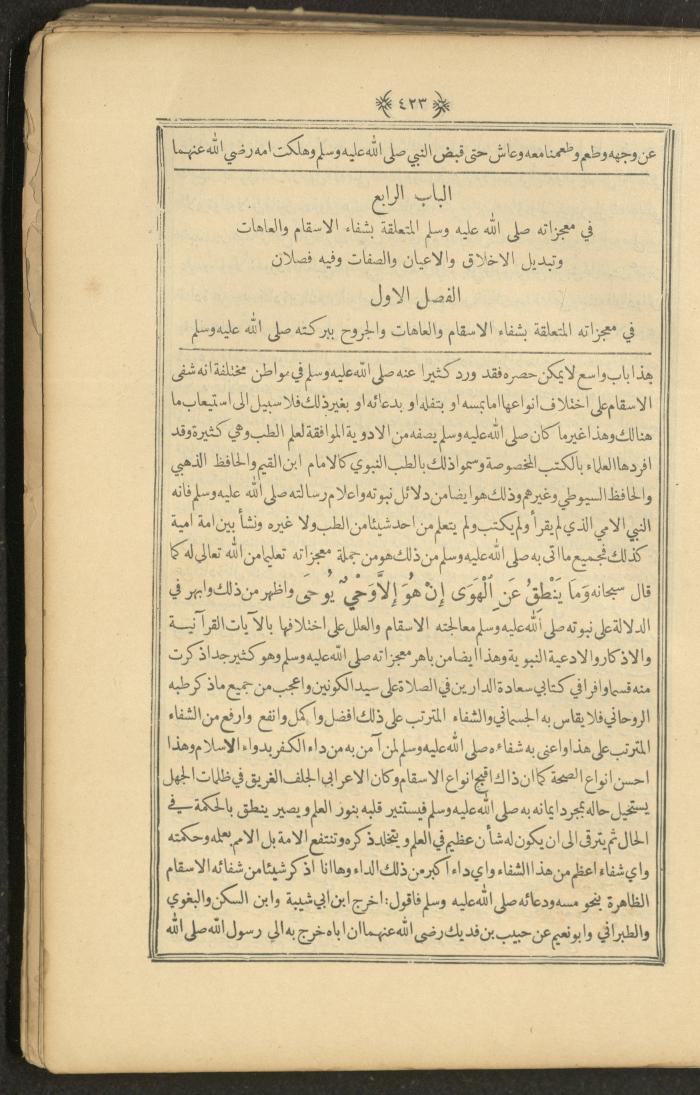 ٤٢٣
عن وجهه وطعم وطعمنا معه وعاش حتى قبض النبي صلى الله عليه وسلم وهلكت امه رضي الله عنهما
الباب الرابع
في معجزاته صلى الله عليه وسلم المتعلقة بشفاء الاسقام والعاهات
وتبديل الاخلاق والاعيان والصفات وفيه فصلان
الفصل الاول
في معجزاته المتعلقة بشفاء الاسقام والعاهات والجروح ببركته صلى الله عليه وسلم
هذا باب واسع لا يمكن حصره فقد ورد كثيرا عنه صلى الله عليه وسلم في مواطن مختلفة انه شفى
الاسقام على اختلاف انواعها اما بمسه او بتفله او بدعائه او بغير ذلك فلا سبيل الى استيعاب ما
هنالك وهذا غير ما كان صلى الله عليه وسلم يصفه من الادوية الموافقة لعلم الطب وهي كثيرة وقد
افردها العلماء بالكتب المخصوصة وسموا ذلك بالطب النبوي كالامام ابن القيم والحافظ الذهبي
والحافظ السيوطي وغيرهم وذلك هو ايضا من دلائل نبوته واعلام رسالته صلى الله عليه وسلم فانه
النبي الامي الذي لم يقرأ ولم يكتب ولم يتعلم من احد شيئا من الطب ولا غيره ونشأ بين امة امية
كذلك فجميع ما اتى به صلى الله عليه وسلم من ذلك هو من جملة معجزاته تعليما من الله تعالى له كما
قال سبحانه وَمَا يَنْطِقُ عَنِ الْهَوَى إِنْ هُوَ إِلاَّ وَحْيٌ يُوحَى واظهر من ذلك وابهر في
الدلالة على نبوته صلى الله عليه وسلم معالجته الاسقام والعلل على اختلافها بالآيات القرآنية
والاذكار والادعية النبوية وهذا ايضا من باهر معجزاته صلى الله عليه وسلم وهو كثير جدا ذكرت
منه قسما وافرا في كتابي سعادة الدارين في الصلاة على سيد الكونين واعجب من جميع ما ذكر طبه
الروحاني فلا يقاس به الجسماني والشفاء المترتب على ذلك افضل واكمل وانفع وارفع من الشفاء
المترتب على هذا واعنى به شفاءه صلى الله عليه وسلم لمن آمن به من داء الكفر بدواء الاسلام وهذا
احسن انواع الصحة كما ان ذاك اقبح انواع الاسقام وكان الاعرابي الجلف الغريق في ظلمات الجهل
يستحيل حاله بمجرد ايمانه به صلى الله عليه وسلم فيستنير قلبه بنور العلم ويصير ينطق بالحكمة في
الحال ثم يترقى الى ان يكون له شأن عظيم في العلم ويتخلد ذكره وتنتفع الامة بل الامم بعلمه وحكمته
واي شفاء اعظم من هذا الشفاء واي داء اكبر من ذلك الداء وها انا آذكر شيئا من شفائه الاسقام
الظاهرة بنحو مسه ودعائه صلى الله عليه وسلم فاقول : اخرج ابن ابي شيبة وابن السكن والبغوي
والطبراني وابو نعيم عن حبيب بن فديك رضى الله عنهما ان اباه خرج به الى رسول الله صلى الله